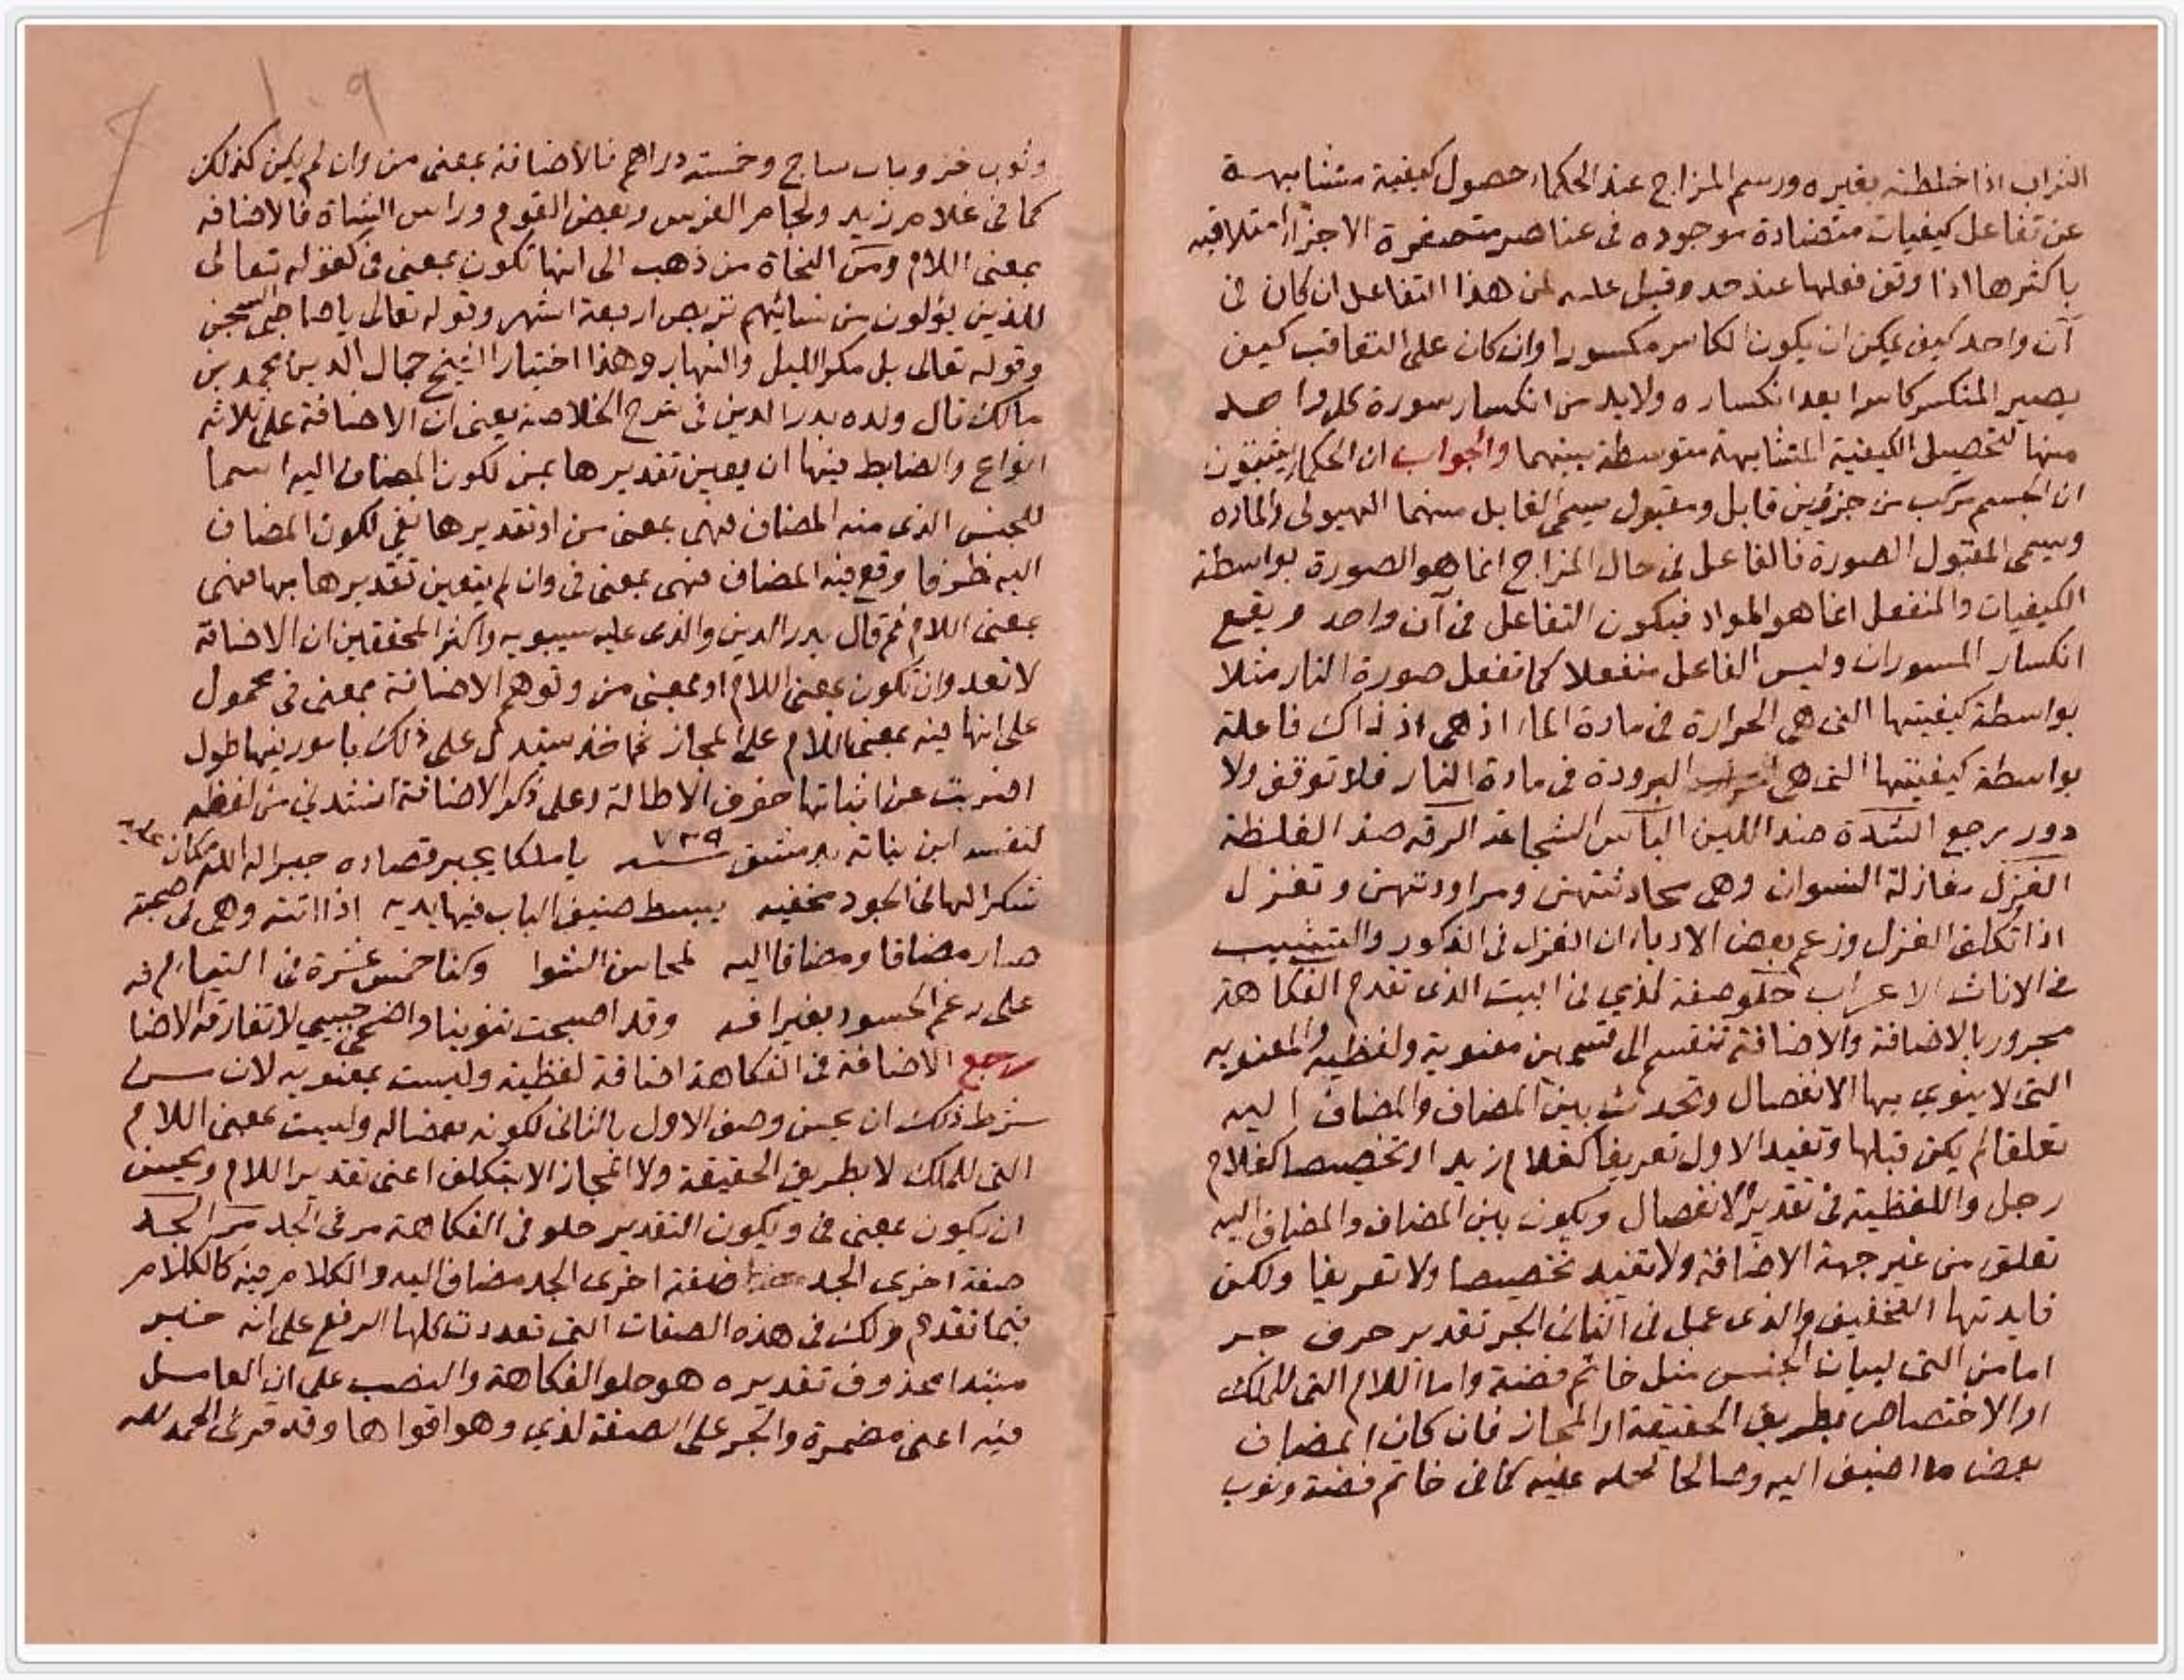 الشراب اذا خلطته بغيره ورسم المزاج عند الحكماء حصول كيفية متشابهة
عن تفاعل كيفيات متضادة موجوده فى عناصر متصغرة الاجزاء متلاقيه
باكثرها اذا وقف فعلها عند حد وقيل عليه لمن هذا التفاعل ان كان فى
آن واحد كيف يمكن ان يكون الكاسر مكسورا وان كان على التعاقب كيف
يصير المنكسر كاسرا بعد انكساره ولابد من انكسار سورة كل واحد
منها لتحصيل الكيفية المتشابهة متوسطة بينهما والجواب ان الحكما يثبتون
ان الجسم مركب من جزؤين قابل ومقبول يسمى القابل منهما الهيولى والماده
ويسمى المقبول الصورة فالفاعل فى حال المزاج انما هو الصورة بواسطة
الكيفيات والمنفعل انما هو المواد فيكون التفاعل فى آن واحد ويقع
انكسار السورات وليس الفاعل منفعلا كما تفعل صورة النار مثلا
بواسطة كيفيتها التى هى الحرارة فى مادة الماء اذ هى اذ ذاك فاعلة
بواسطة كيفيتها التى هى البرودة فى مادة النار فلا توقف ولا
دور يرجع الشدة ضد اللين البأس الشجاعة الرقه ضد الغلظة
الغزل مغازلة النسوان وهى محادثتهن ومراودتهن وتغزل
اذا تكلف الغزل وزعم بعض الادباء ان الغزل فى الذكور والتشبيب
فى الاناث الاعراب حلو صفة لذي فى البيت الذى تقدم الفكاهة
مجرور بالاضافة والاضافة تنقسم الى قسمين معنوية ولفظيه والمعنويه
التى لا ينوي بها الانفصال وتحدث بين المضاف والمضاف اليه
تعلقا لم يكن قبلها وتفيد الاول تعريفا كغلام زيد او تخصيصا كغلام
رجل واللفظية فى تقدير الانفصال ويكون بين المضاف والمضاف اليه
تعلق من غير جهة الاضافة ولا تفيد تخصيصا ولا تعريفا ولكن
فايدتها التخفيف والذى عمل فى الثانى الجر تقدير حرف جر
اما من التى لبيان الجنس مثل خاتم فضة واما اللام التى للملك
او الاختصاص بطريق الحقيقة او المجاز فان كان المضاف
بعض ما اضيف اليه وصالحا لحمله عليه كما فى خاتم فضة وثوب
وثوب خز وباب ساج وخمسة دراهم فالاضافة بمعنى من وان لم يكن كذلك
كما فى غلام زيد ولجام الفرس وبعض القوم وراس الشاة فالاضافه
بمعنى اللام ومن النحاة من ذهب الى انها تكون بمعنى فى كقوله تعالى
للذين يؤلون من نسائهم تربص اربعة اشهر وقوله تعالى يا صاحبى السجن
وقوله تعالى بل مكر الليل والنهار وهذا اختيار الشيخ جمال الدين محمد بن
مالك قال ولده بدر الدين فى شرح الخلاصه يعنى ان الاضافة على ثلاثه
انواع والضابط فيها ان يعين تقديرها بمن لكون المضاف اليه اسما
للجنس الذى منه المضاف فهى بمعنى من او تقديرها بفى لكون المضاف
اليه ظرفا وقع فيه المضاف فهى بمعنى فى وان لم يتعين تقديرها بها فهى
بمعنى اللام ثم قال بدر الدين والذى عليه سيبويه واكثر المحققين ان الاضافة
لا تعدو ان تكون بمعنى اللام او بمعنى من وتوهم الاضافة بمعنى فى محمول
على انها فيه بمعنى اللام على المجاز ثم اخذ يستدل على ذلك بامور فيها طول
اضربت عن اثباتها خوف الاطالة وعلى ذكر الاضافة انشدنى من لفظه
لنفسه ابن نباته بدمشق سنة ٧٣٩ يا ملكا يجبر قصاده جبرا له الله
شكرا لها فى الجود مخفيه يبسط ضيف الباب فيها يديه اذا اتته وهى فى صحبة
صار مضافا ومضافا اليه لمحاسن الشوا وكنا خمس عشرة فى التيام
على رغم الحسود بغير افه وقد اصبحت تنوينا واضحى حبيبي لا تفارقه الاضا
رجع الاضافة فى الفكاهة اضافة لفظية وليست بمعنويه لان من
شرط ذلك ان يحسن وصف الاول بالثانى لكونه بعضا له وليست بمعنى اللام
التى للملك لا بطريق الحقيقة ولا المجاز الا بتكلف اعنى تقدير اللام ويحسن
ان يكون بمعنى فى ويكون التقدير حلو فى الفكاهة مر فى الجد مر الجد
صفة اخرى الجد مضاف اليه والكلام فيه كالكلام
فيما تقدم ولك فى هذه الصفات التى تعددت كلها الرفع على انه خبر
مبتدا محذوف تقديره هو حلو الفكاهة والنصب على ان العامل
فيه اعنى مضمرة والجر على الصفة لذي وهو اقواها وقد قرئ الحمد لله